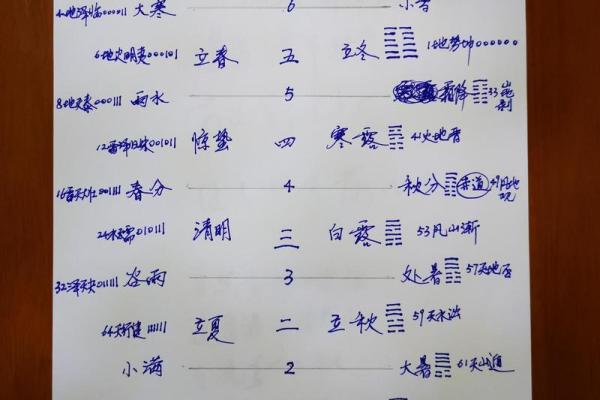 地泽临000011 大寒 6 小雪
6地火明夷000101 立春 五 立冬 1地势坤000000
8地天泰000111 雨水 5 霜降 33山地剥
12雷泽归妹001011 惊蛰 四 寒露 41火地晋
16雷天大壮001111 春分 4 秋分 赤道 49风地观
24水天需010111 清明 三 白露 53风山渐
32泽天夬011111 谷雨 3 处暑 57天地否
64天行健111111 立夏 二 立秋 59天水讼
小满 2 大暑 61天山遁